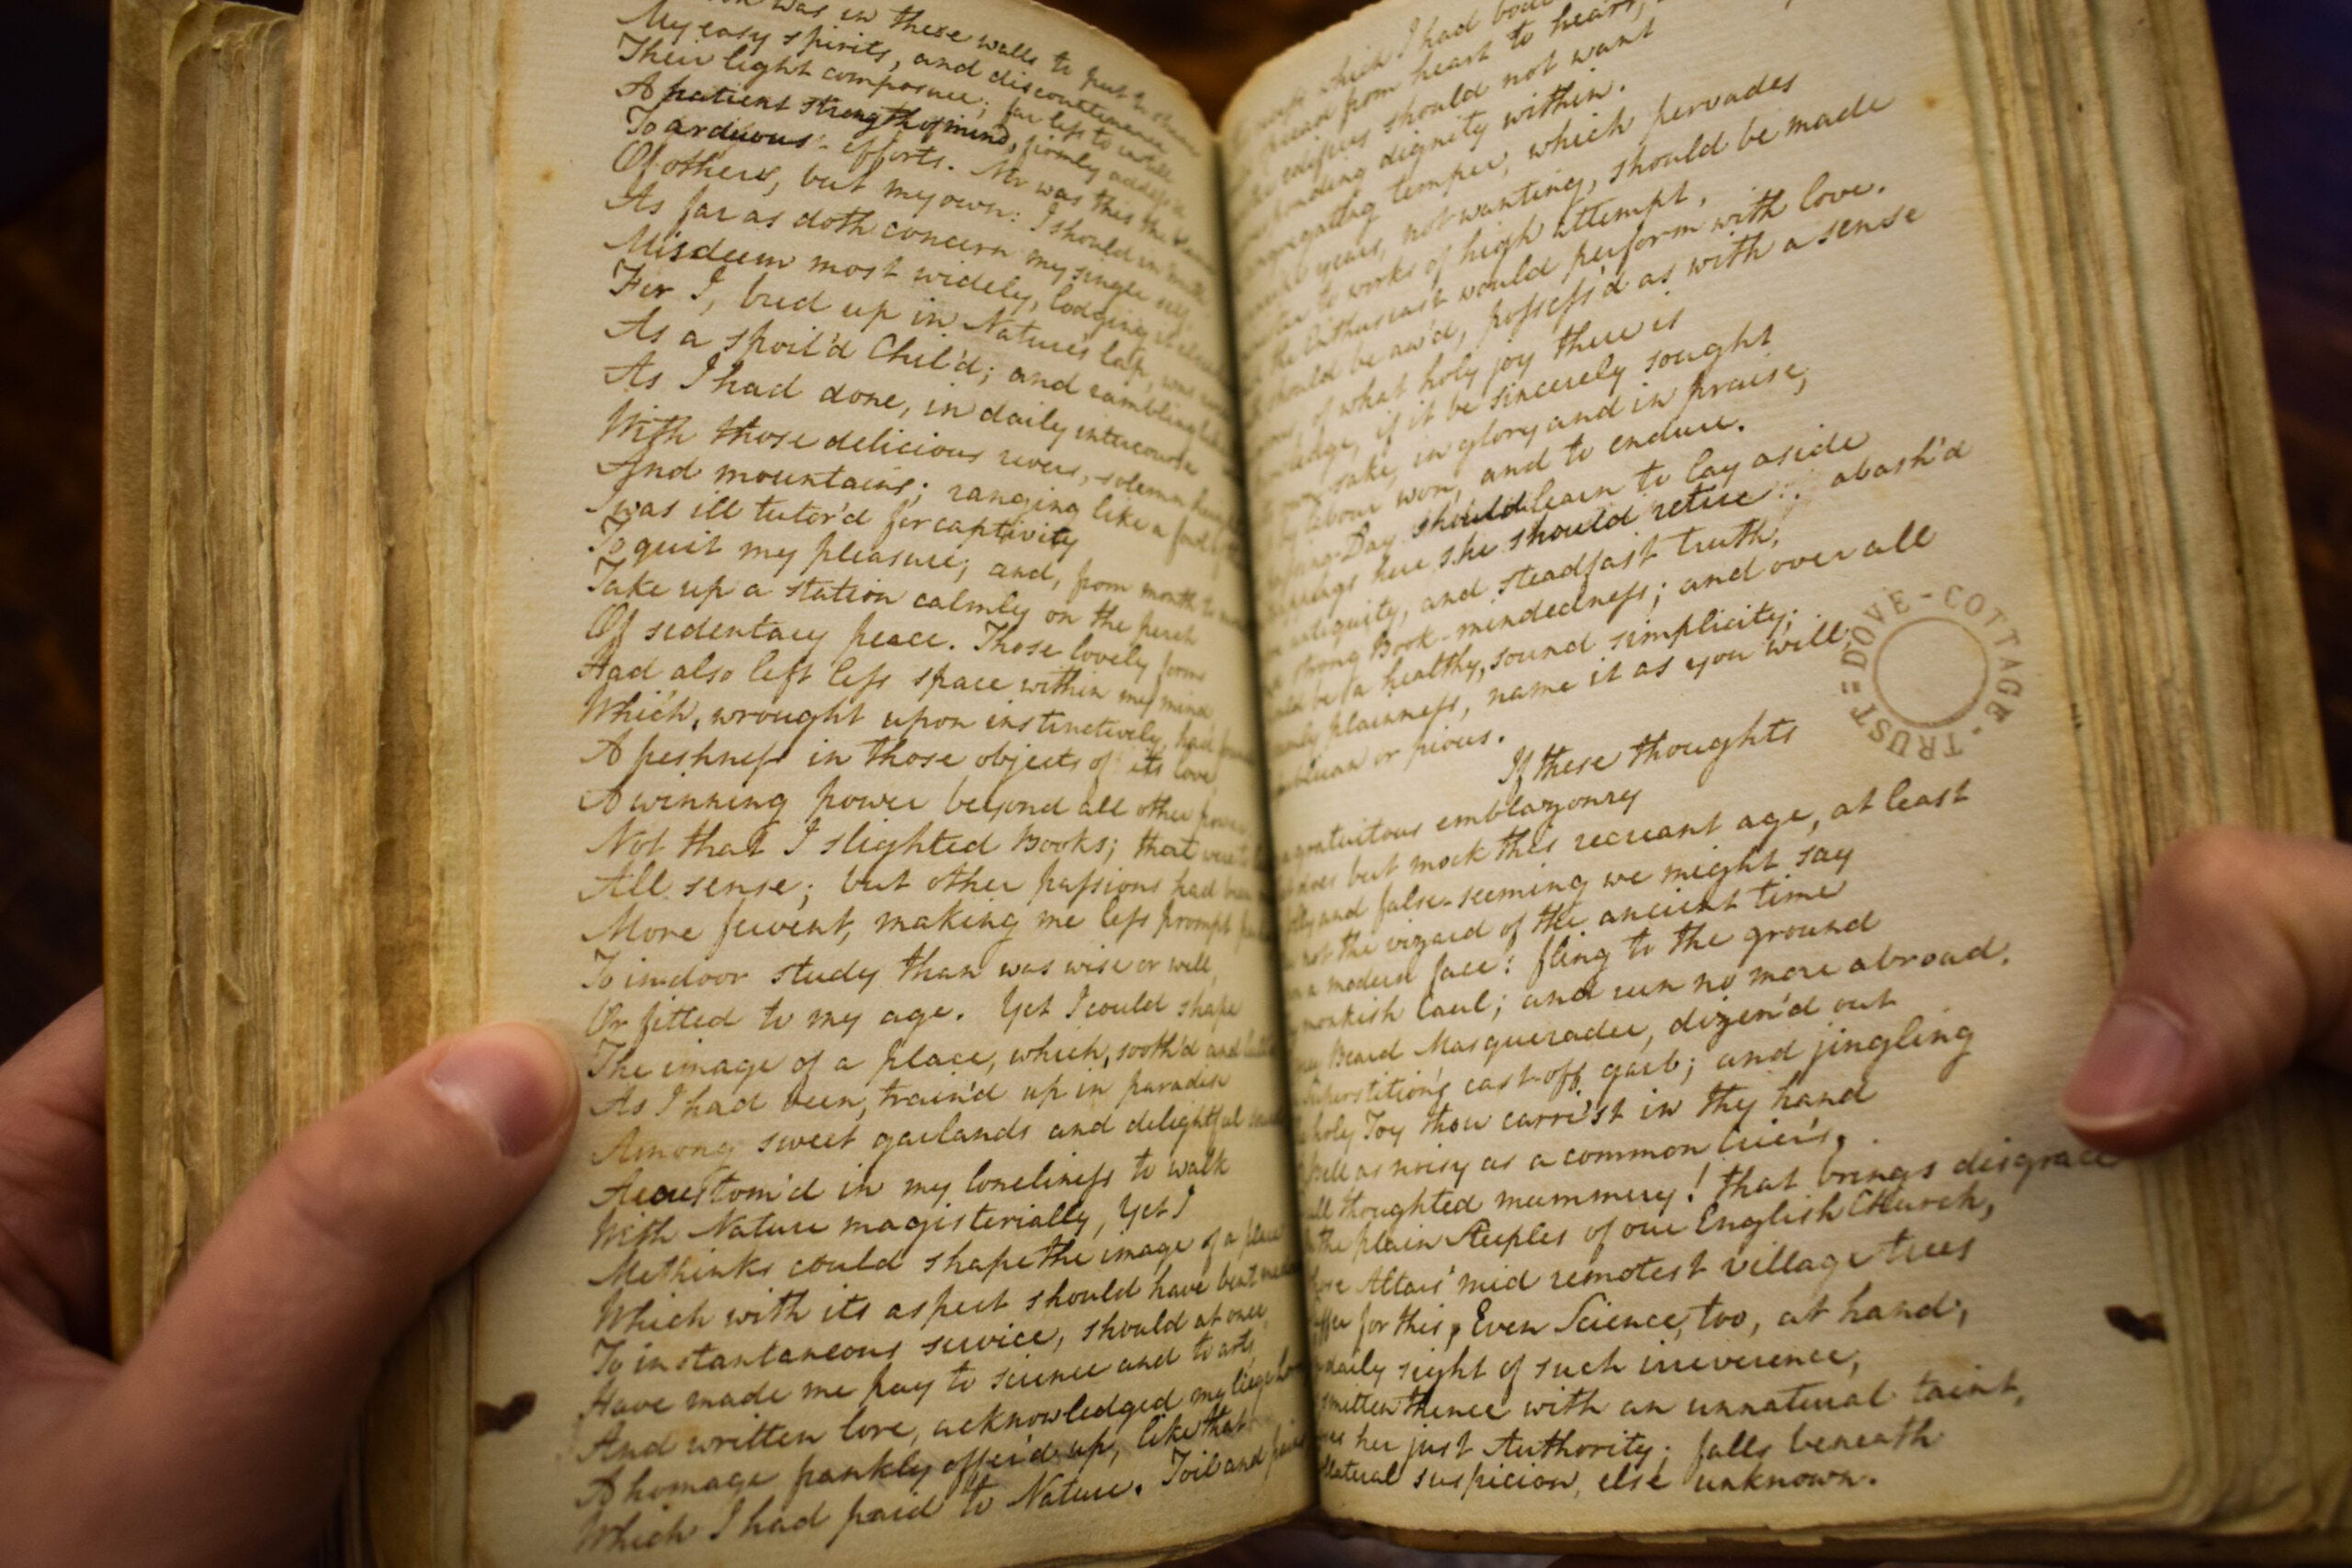 was in these walls to put to shame
My easy spirits, and discountenance
Their light composure; far less to instill
A patient strength of mind, firmly address'd
To arduous efforts. Nor was this the blame
Of others, but my own: I should in truth
As far as doth concern my single self
Misdeem most widely, lodging it elsewhere
For I, bred up in Nature's lap, was even
As a spoil'd Child; and rambling like the
As I had done, in daily intercourse
With those delicious rivers, solemn heights
And mountains; ranging like a fowl of the
I was ill tutor'd for captivity
To quit my pleasure, and, from month to month
Take up a station calmly on the perch
Of sedentary peace. Those lovely forms
Had also left less space within my mind
Which, wrought upon instinctively, had found
A freshness in those objects of its love,
A winning power beyond all other power
Not that I slighted Books; that were to
All sense; but other passions had been
More fervent, making me less prompt
To in-door study than was wise or well,
Or fitted to my age. Yet I could shape
The image of a place, which, sooth'd and
As I had been, train'd up in paradise
Among sweet garlands and delightful sounds
Accustom'd in my loneliness to walk
With Nature magisterially, Yet I
Methinks could shape the image of a place
Which with its aspect should have bent me
To instantaneous service, should at once
Have made me pay to science and to arts
And written lore, acknowledged my liege
A homage frankly offer'd up, like that
Which I had paid to Nature. Toil and pains
which I had
from heart to heart;
edifices should not want
dignity within.
temper, which pervades
years, not wanting, should be made
to works of high attempt,
the Enthusiast would perform with love.
should be aw'd, possess'd as with a sense
of what holy joy there is
if it be sincerely sought
sake, in glory and in praise,
by labour won, and to endure.
Day should learn to lay aside
here, she should retire abash'd
antiquity, and steadfast truth,
strong Book-mindedness; and over all
be a healthy, sound simplicity;
plainness, name it as you will
or pious.
If these thoughts
gratuitous emblazonry
does but mock this recreant age, at least
and false-seeming we might say
not the vizard of the ancient time
a modern face: fling to the ground
monkish Cowl; and run no more abroad.
Beard Masquerader, dizen'd out
Superstition's cast-off garb; and jingling
holy Toy thou carri'st in thy hand
Bell as noisy as a common Crier's,
thoughted mummery! that brings disgrace
the plain Steeples of our English Church,
Altars' mid remotest village trees
for this, Even Science, too, at hand,
daily sight of such irreverence,
smitten thence with an unnatural taint,
her just Authority; falls beneath
suspicion, else unknown.
DOVE-COTTAGE-TRUST